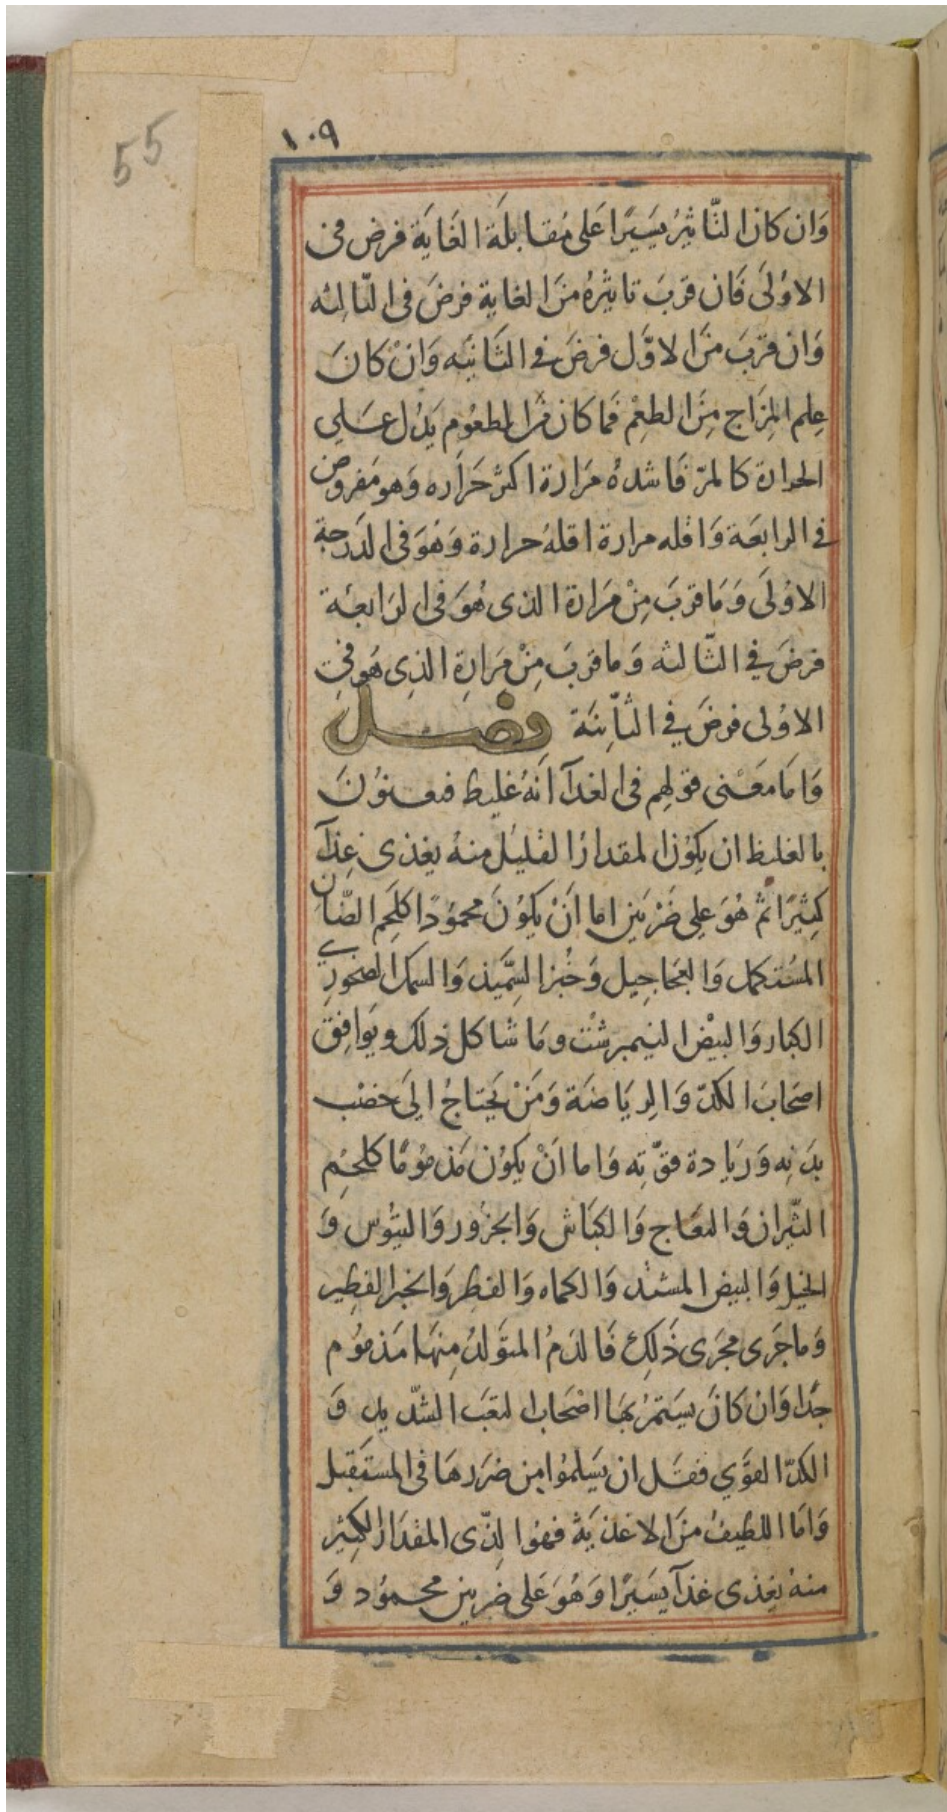 55
١٠٩
وَان كانَ التّاثيرُ يَسَيرًا عَلى مُقابلَة الغَايَة فرض فى
الاوُلَى فَان قربَ تاثيرهُ منَ الغاية فرضَ فى الثّالثه
وَان قربَ منَ الاوَّل فرضَ في الثَانيَه وَانْ كانَ
عِلم المِزَاج مِنَ الطعِمْ فما كان منَ المطعُوم يَدُل عَلى
الحرارة كالمرّ فَاشدهُ مرَارة اكثرُ حَرَاره وَهو مَفروض
في الرابعَة وَاقله مرارة اقلهُ حرارة وَهُوَ فى الدَرجة
الاوُلَى وَمَا قربَ مِنْ مَرَارة الذى هُوَ فى الرَابعَة
فرضَ في الثّالثه وَما قربَ مِنْ مَرارةِ الذِى هَو فى
الاوُلى فرضَ في الثّانِيَة فصل
وَامَا مَعْنى قولهِم فى الغدَآ انهُ غليظ فيعنوُنَ
بالغليظ ان يكوُنَ المقدارُ القليُل منهُ يغذى غِذآ
كثِيرًا ثمّ هُوَ على ضَرْبَين اما انْ يكوُنَ محموُدًا كلحَم الضّان
المسُتكمل وَالعجَاجِيل وَخُبز السَّميذ وَالسمك الصخورِي
الكبار وَالبيْض النيمبرشْت ومَا شاكل ذلك ويَوافِق
اصَحابَ الكدّ وَالرِيَاضَة وَمَنْ يَحتاجُ الىَ خصْب
بدَنِه وَزيادة قوّته وَاما انْ يكوُن مَذموُمًا كلحَم
الثّيران وَالنعَاج وَالكبَاش وَالجزُور وَالتيُوس وَ
الخيل وَالبيض المشتد وَالكماه وَالفطِر وَالخبز الفطِير
وَما جَرى مجرَى ذَلِك فَالدَمُ المتوَلدُ مِنهَا مَذموُم
جدًا وَانْ كانَ يسَتمرُ بهَا اصْحَاب التعَب الشّديد وَ
الكدّ القوَي فقَل ان يَسَلموُا مِن ضرَرهَا فى المستَقبل
وَامَا اللطيفُ منَ الاغذيَة فهوُ الذّى المقدَارُ الكثِير
منهُ يغذى غذآ يسَيرًا وَهُوَ عَلى ضربين محموُد وَ